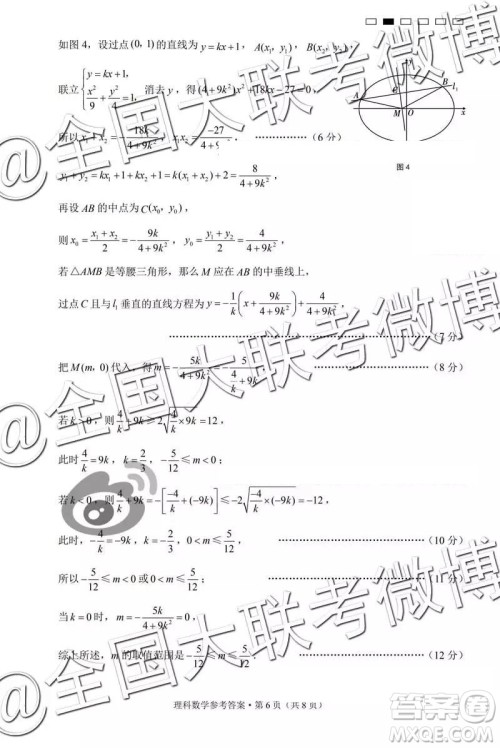 如图4，设过点(0，1)的直线为y=kx+1，A(x₁，y₁)，B(x₂，y₂)，
联立{y=kx+1，x²/9+y²/4=1，消去y，得(4+9k²)x²+18kx−27=0，
所以x₁+x₂=−18k/(4+9k²)，x₁x₂=−27/(4+9 ………………(6分)
y₁+y₂=kx₁+1+kx₂+1=k(x₁+x₂)+2=8/(4+9k²)，
图4
再设AB的中点为C(x₀，y₀)，
则x₀=(x₁+x₂)/2=−9k/(4+9k²)，y₀=(y₁+y₂)/2=4/(4+9k²)，
若△AMB是等腰三角形，那么M应在AB的中垂线上，
过点C且与l₁垂直的直线方程为y=−1/k(x+9k/(4+9k²))+4/(4+9k²)，
………………(7分)
把M(m，0)代入，得m=−5k/(4+9k²)=−5/(4/k+9k)， ………………(8分)
若k>0，则4/k+9k≥2√(4/k×9k)=12，
此时4/k=9k，k=2/3，−5/12≤m<0；
若k<0，则4/k+9k=−[−4/k+(−9k)]≤−2√(−4/k×(−9k))=−12，
此时，−4/k=−9k，k=−2/3，0<m≤5/12； ………………(10分)
所以−5/12≤m<0或0<m≤5/12； ………………(11分)
当k=0时，m=−5k/(4+9k²)=0，
综上所述，m的取值范围是−5/12≤m≤5/12． ………………(12分)
理科数学参考答案·第6页（共8页）
@全国大联考微博
@全国大联考微博
答案圈
MXQE.COM